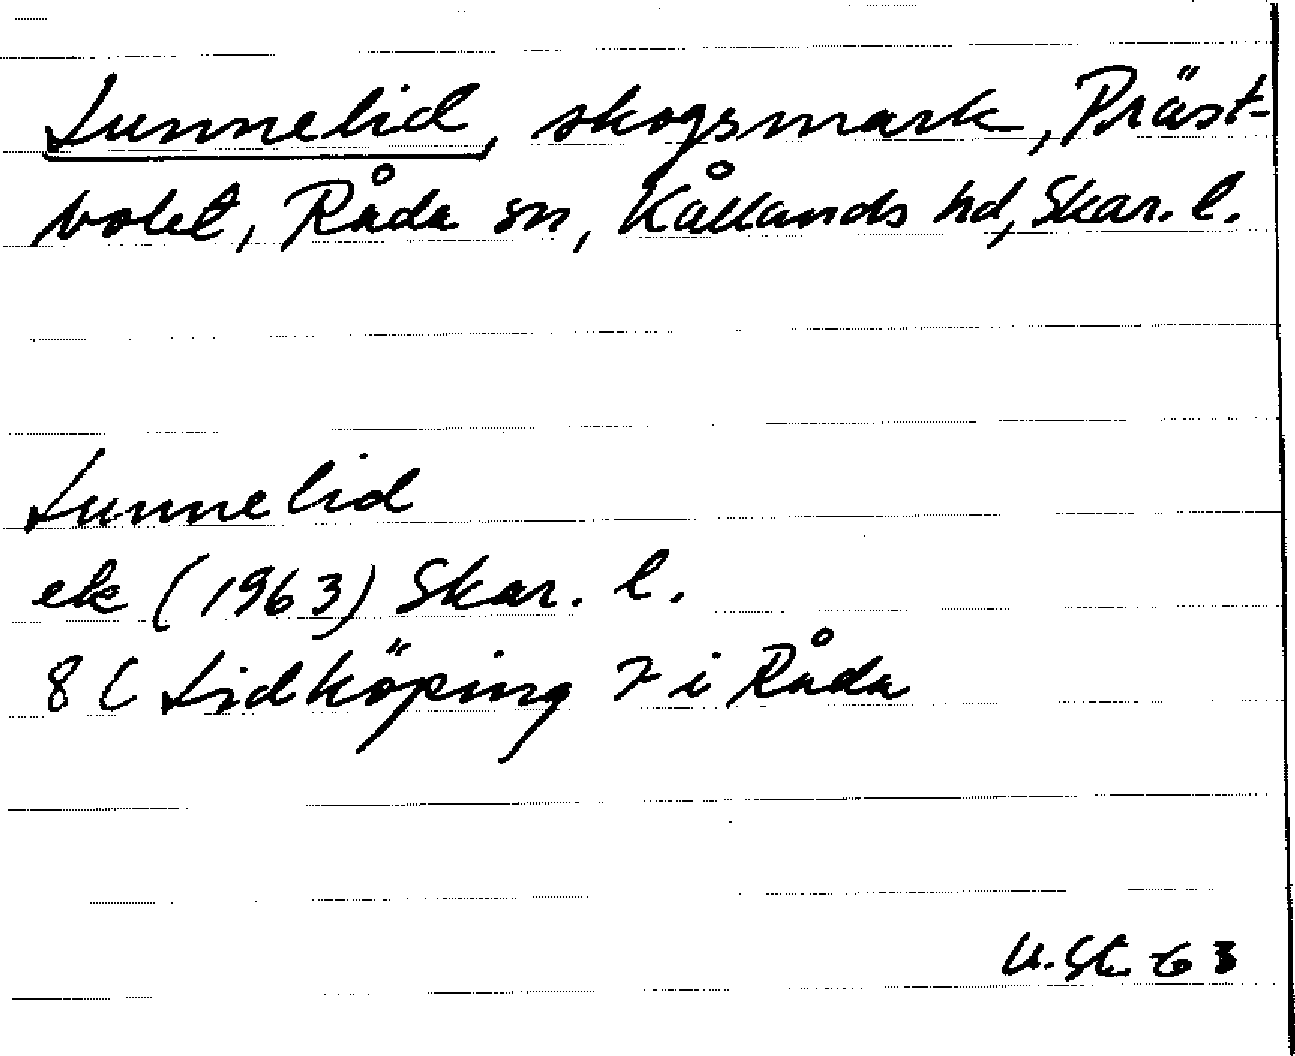 Lunnelid, skogsmark, Präst-
bolet, Råda sn, Kållands hd, Skar. l.
Lunnelid
ek (1963) Skar. l.
8 C Lidköping 7 i Råda
U.St. 63